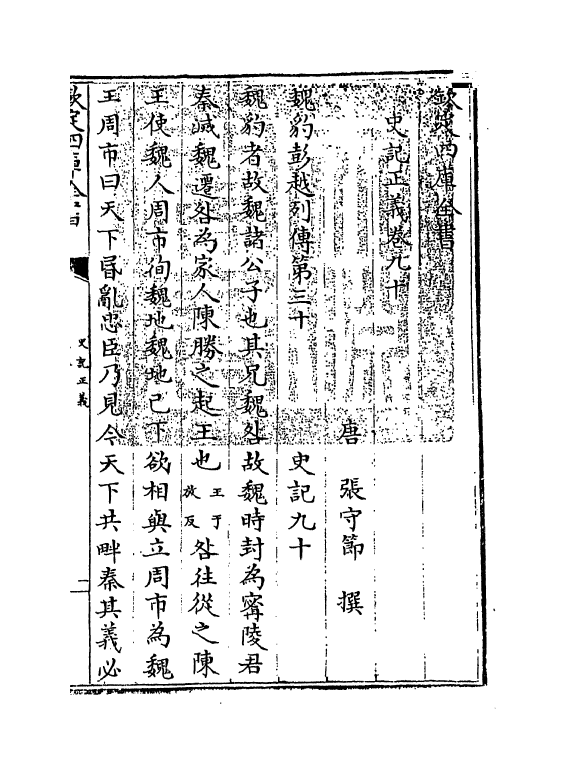 欽定四庫全書
史記正義卷九十
唐 張守節 撰
魏豹彭越列傳第三十 史記九十
魏豹者故魏諸公子也其兄魏咎故魏時封為寧陵君
秦滅魏遷咎為家人陳勝之起王也王于放反咎往從之陳
王使魏人周市徇魏地魏地已下欲相與立周市為魏
王周市曰天下昏亂忠臣乃見今天下共畔秦其義必
欽定四庫全書
史記正義